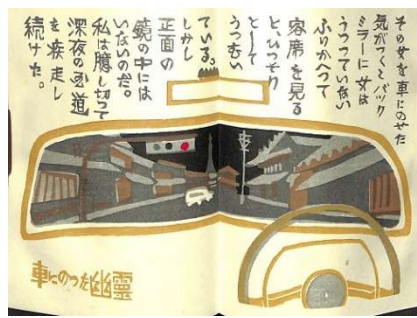 その女を車にのせた
気がつくとバック
ミラーに女は
うつっていない
ふりかへって
客席を見る
と、ひっそり
として
うつむい
ている。
しかし
正面の
鏡の中には
いないのだ。
私は臆し切って
深夜の国道
を疾走し
続けた。
車にのった幽霊